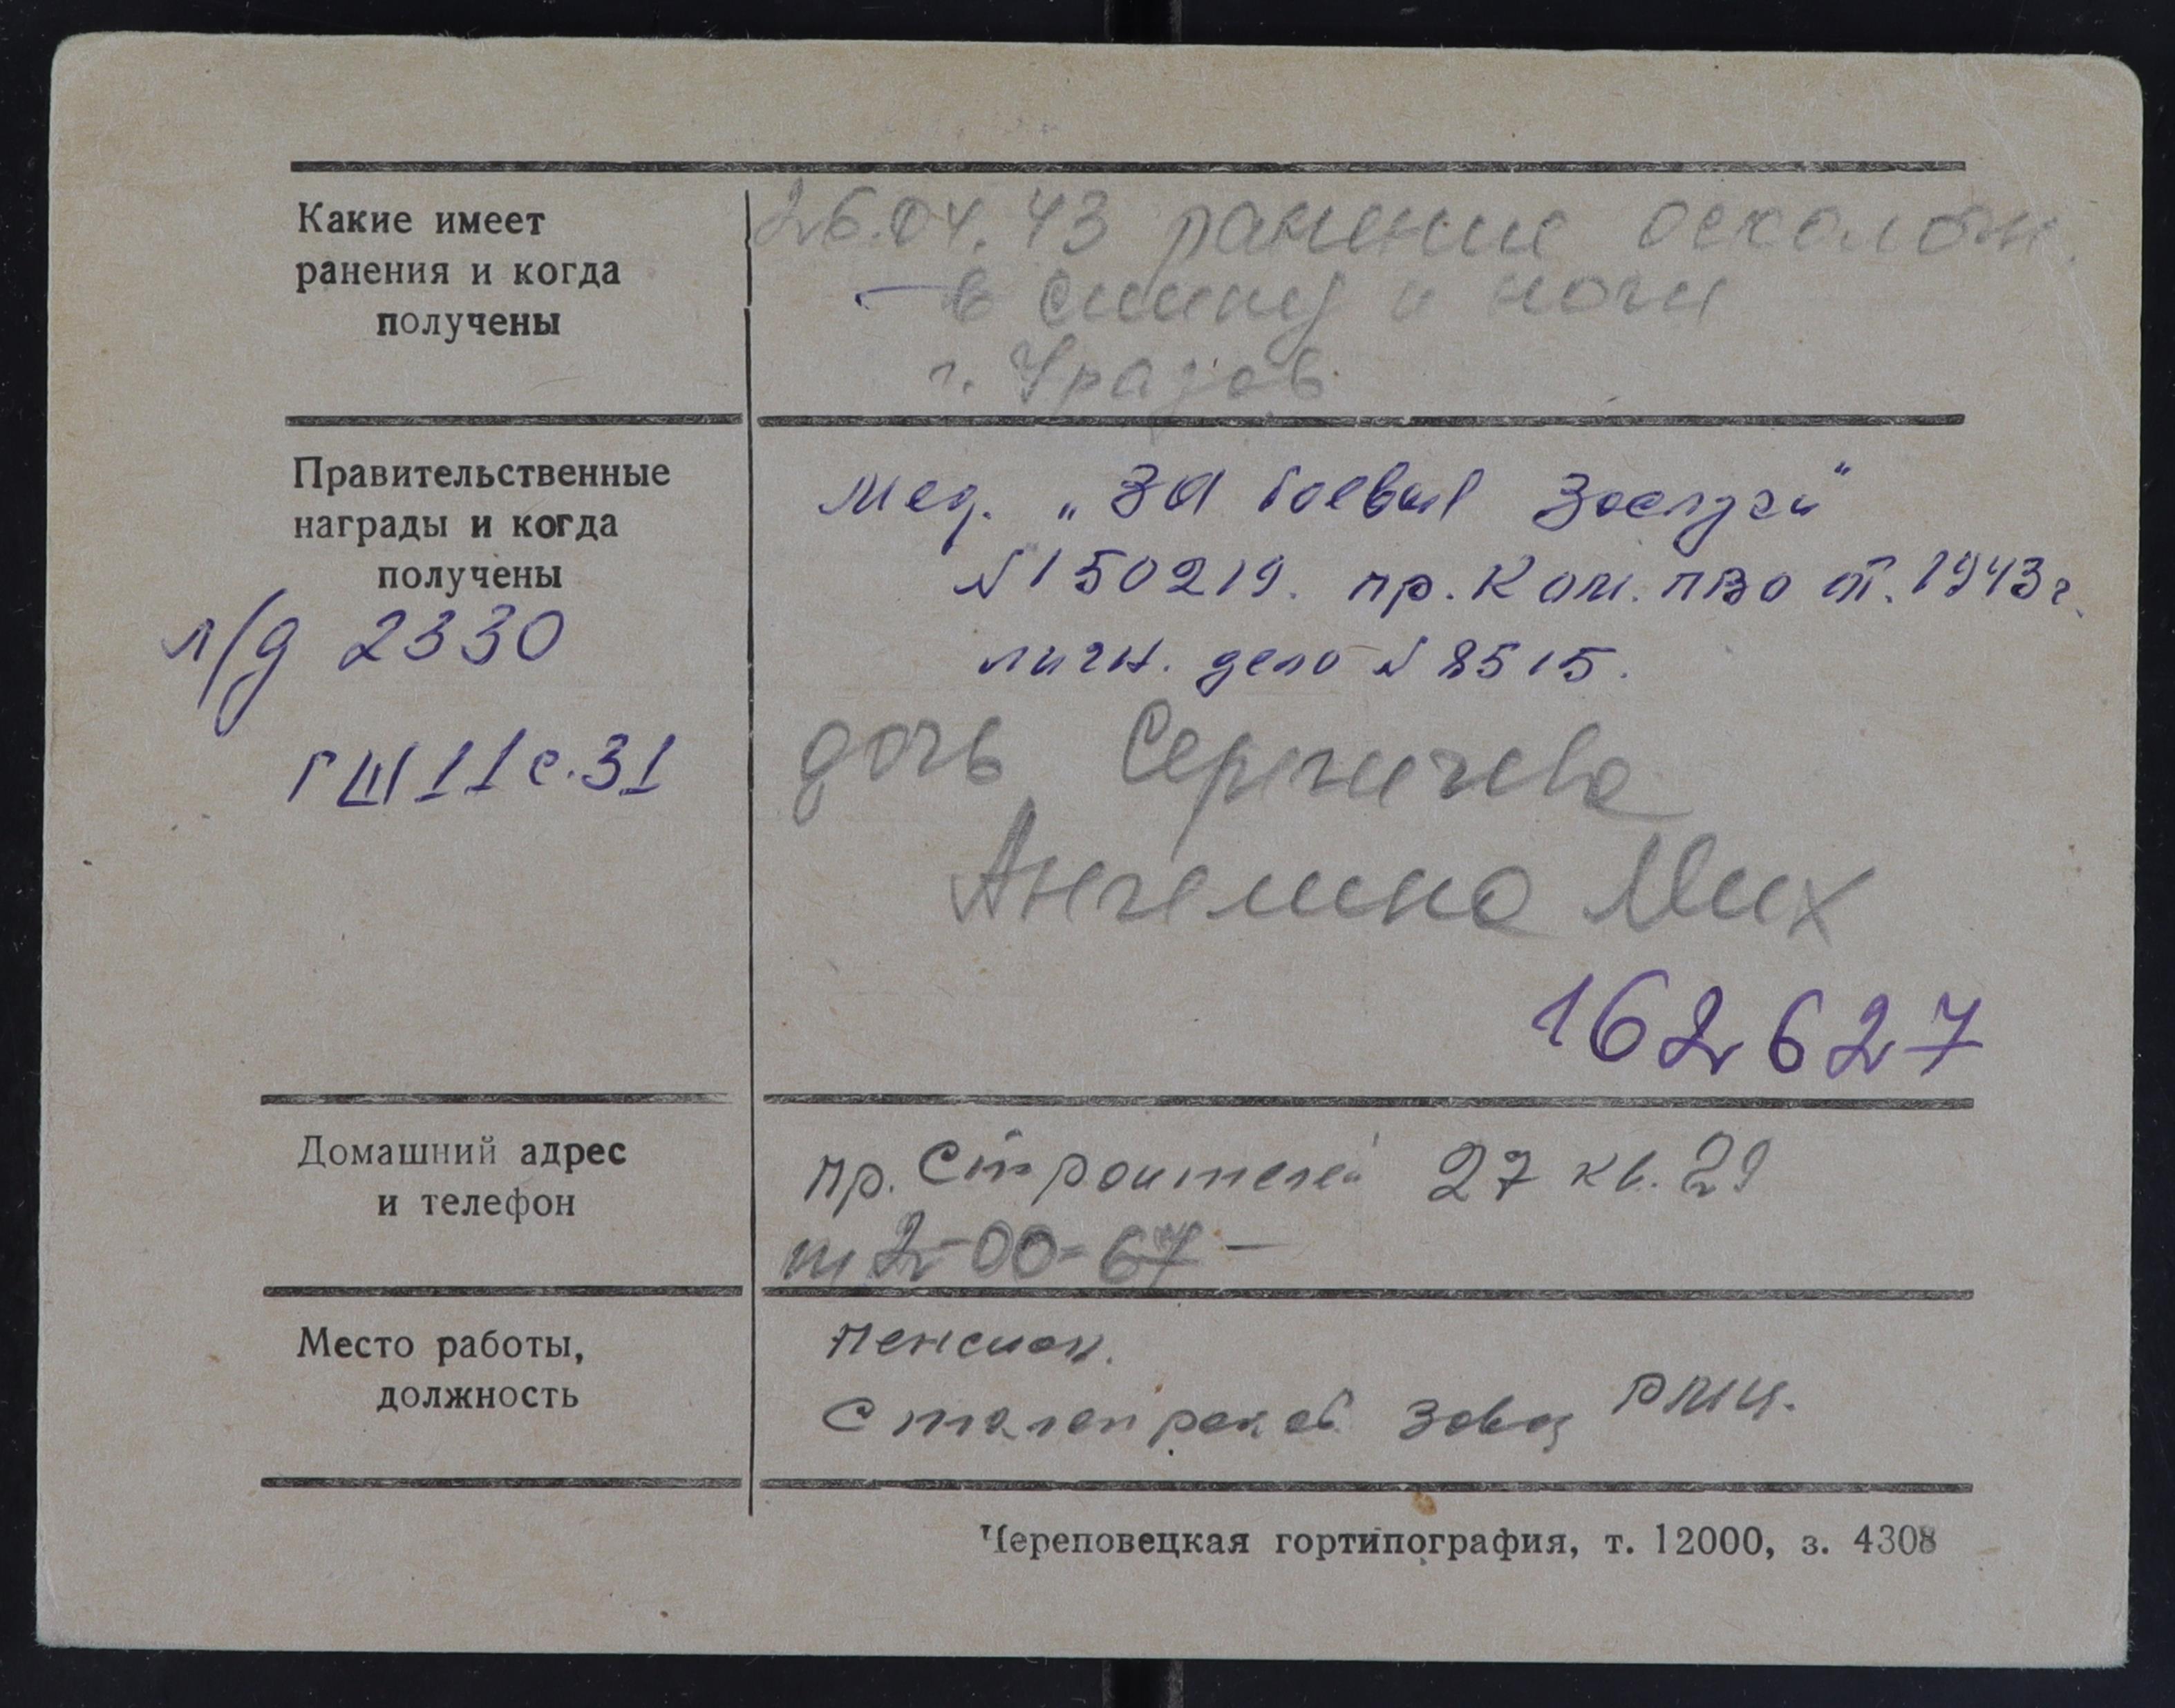 Какие имеет
ранения и когда
получены
26.04.43 ранение осколочн.
в спину и ноги
г. Уразов
Правительственные
награды и когда
получены
л/д 2330
ГШ 11 с. 31
Мед. „За боевые заслуги"
№ 150219. пр. Ком. ПВО от. 1943 г.
личн. дело № 8515.
дочь Сергичева
Ангелина Мих
162627
Домашний адрес
и телефон
пр. Строителей 27 кв. 29
т 2-00-67 -
Место работы,
должность
пенсион.
Сталепрокат. завод РМЦ.
Череповецкая гортипография, т. 12000, з. 4308